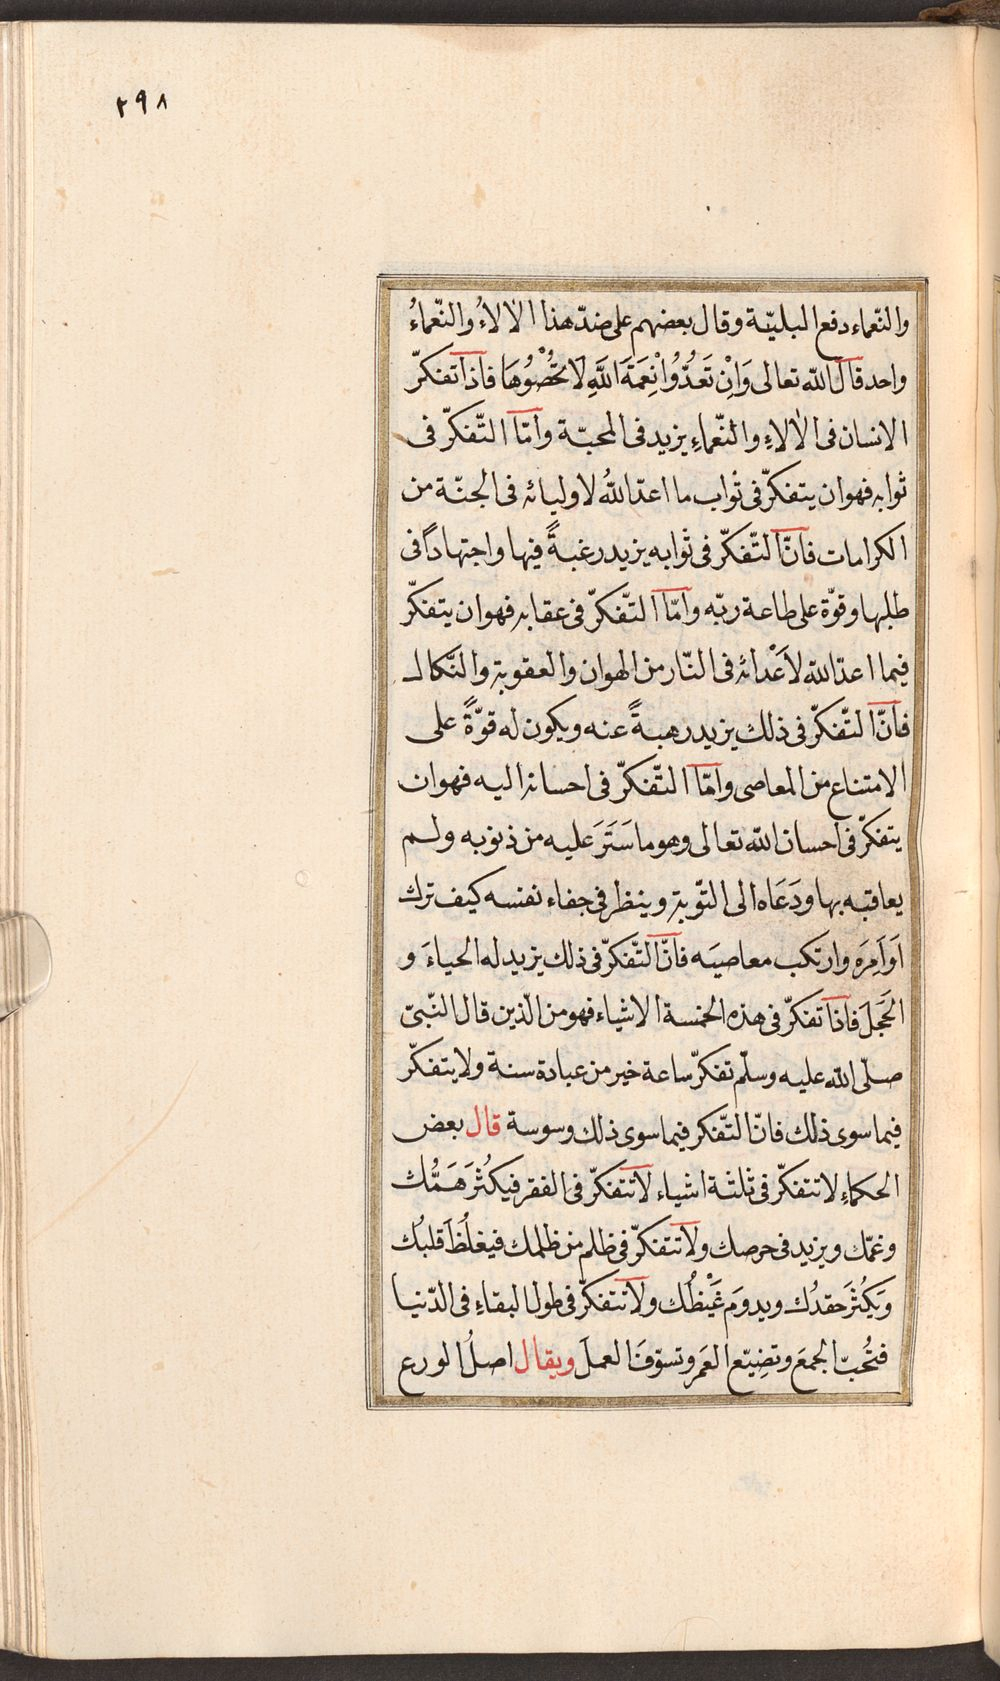 ٢٩٨
والنّعماء دفع البليّة وقال بعضهم على ضدّ هذا الالاءُ والنّعماءُ
واحد قال اللّه تعالى وَاِنْ تَعُدُّوا نِعْمَةَ اللَّهِ لَا تُحْصُوهَا فاذا تفكّر
الانسان فى الالاءِ والنّعماءِ يزيد فى المحبّة وامّا التّفكّر فى
ثوابه فهو ان يتفكّر فى ثواب ما اعدّ اللّهُ لاوليائه فى الجنّة من
الكرامات فانّ التّفكّر فى ثوابه يزيد رغبةً فيها واجتهاداً فى
طلبها وقوّة على طاعة ربّه وامّا التّفكّر فى عقابه فهو ان يتفكّر
فيما اعدّ اللّه لاَعْدائه فى النّار من الهوان والعقوبة والنَّكال
فانّ التّفكّر فى ذلك يزيد رهبةً عنه ويكون له قوّةً على
الامتناع من المعاصى وامّا التّفكّر فى احسانه اليه فهو ان
يتفكّر فى احسان اللّه تعالى وهو ما سَتَرَ عليه من ذنوبه ولم
يعاقبه بها ودَعَاه الى التّوبة وينظر فى جفاء نفسه كيف ترك
اَوَامِرَه وارتكب معاصيَه فانّ التّفكّر فى ذلك يزيد له الحياءَ و
الخَجَلَ فاذا تفكّر فى هذه الخمسة الاشياء فهو من الّذين قال النّبىّ
صلّى اللّه عليه وسلّم تفكّر ساعة خير من عبادة سنة ولا يتفكّر
فيما سوى ذلك فانّ التّفكر فيما سوى ذلك وسوسة قال بعض
الحكماءِ لا تتفكّر فى ثلثة اشياء لا تتفكّر فى الفقر فيكثُرَ هَمُّك
وغمّك ويزيد فى حرصك ولا تتفكّر فى ظلم من ظلمك فيغلُظَ قلبُك
ويَكثُرَ حقدُك ويدومَ غَيْظُك ولا تتفكّر فى طول البقاءِ فى الدّنيا
فتُحبّ الجمعَ وتضيّع العَمر وتسوّفَ العملَ ويقال اصلُ الورع